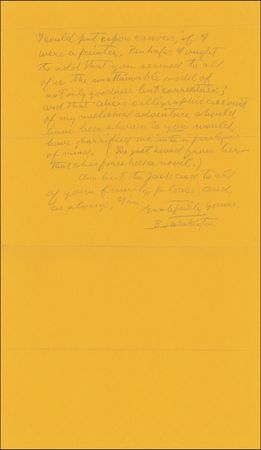 I could put upon canvas, if I
were a painter. Perhaps I ought
to add that you seemed to all
of us the unattainable model of
not only goodness but correctness;
and that Alice's calligraphic account
of my weekend adventure should
have been shown to you would
have horrified me into a paralysis
of mind. (I've just heard from her
that she's finished a novel.)
love to Jack and to all
of your family, please, and
as always, I'm
gratefully yours,